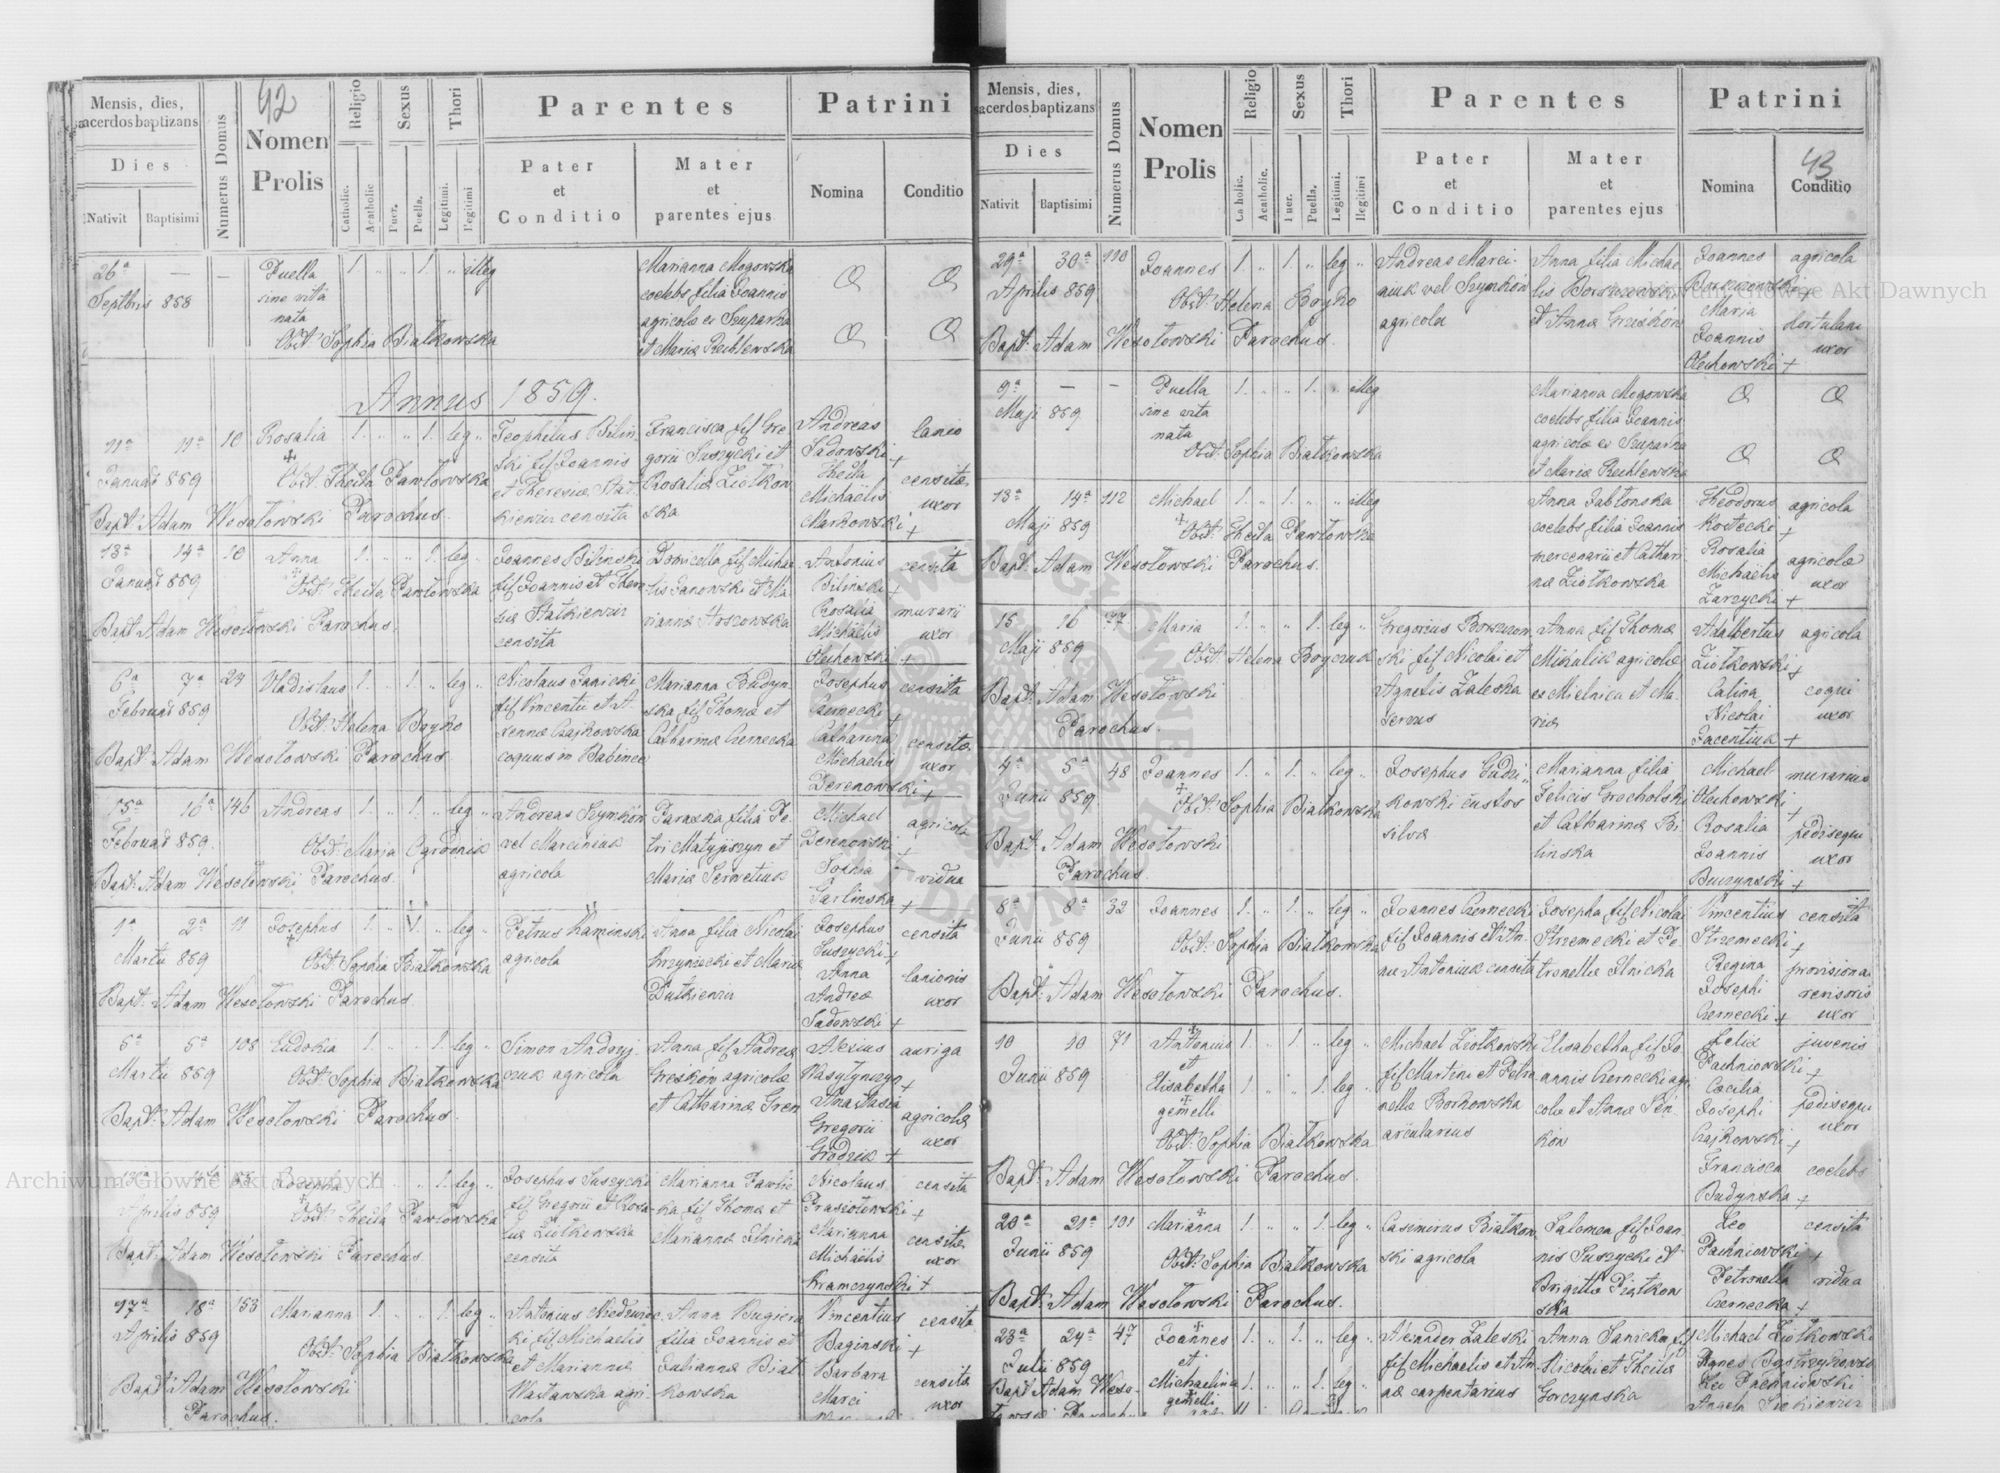 42
Mensis, dies,
sacerdos baptizans
Dies
Nativit
Baptisimi
Numerus Domus
Nomen
Prolis
Religio
Catholic.
Acatholic
Sexus
Puer.
Puella.
Thori
Legitimi.
Illegitimi
Parentes
Pater
et
Conditio
Mater
et
parentes ejus
Patrini
Nomina
Conditio
26ª — — Puella 1 " " 1. " illeg
Septbris 858 sine vita
nata
Obst: Sophia Białkowska
Marianna Mogowska
coelebs filia Joannis
agricolæ ex Szuparka
et Mariæ Rechlewska
Annus 1859.
11ª 11ª 10 Rosalia 1. " " 1. leg "
Januar 859 Obst: Thecla Pawłowska
Bapt: Adam Wesołowski Parochus.
Teophilus Bilin-
ski fil Joannis
et Theresiæ Stat-
kiewicz censita
Francisca fil Gre
gorii Suszycki et
Rosaliæ Ziółkow
ska
Andreas
Sadowski +
Thecla
Michaëlis
Markowski +
lanio
censitæ
uxor
13ª 14ª 10 Anna 1. " " 1. leg "
Januar 859 Obst: Thecla Pawłowska
Bapt: Adam Wesołowski Parochus.
Joannes Bilinski
fil Joannis et There
siæ Statkiewicz
censita
Domicella fil Micha
lis Janowski et Ma
riannæ Hoszowska
Antonius
Bilinski +
Rosalia
Michaëlis
Olechowski +
censita
murarii
uxor
6ª 7ª 24 Vladislaus 1. " 1. " leg "
Februar 859 Obst: Helena Boyko
Bapt: Adam Wesołowski Parochus
Nicolaus Janicki
fil Vincentii et A
Czajkowska
coquus in Babince
Marianna Budyn-
ska fil Thomæ et
Catharinæ Czernecka
Josephus
Czernecki +
Catharina
Michaelis
Derenowski +
censita
censitæ
uxor
15ª 16ª 146 Andreas 1. " 1. " leg "
Februar 859. Obst: Maria Ogrodnik
Bapt: Adam Wesołowski Parochus.
Andreas Szymków
vel Marciniuk
agricola
Paraska filia Pe
tri Matyjiszyn et
Mariæ Serwetiuk
Michael
Derenowski +
Sophia
Garlinska +
agricola
vidua
1ª 2ª 11 Josephus 1. " 1. " leg "
Martii 859 Obst: Sophia Białkowska
Bapt: Adam Wesołowski Parochus.
Petrus Kaminski
agricola
Anna filia Nicolai
Krzyniecki et Mariæ
Dutkiewicz
Josephus
Suszycki +
Anna
Andreæ
Sadowski +
censita
lanionis
uxor
5ª 5ª 108 Eudokia 1. " " 1. leg "
Martii 859 Obst: Sophia Białkowska
Bapt: Adam Wesołowski Parochus.
Simon Andryj-
czuk agricola
Anna fil Andreæ
Greskow agricolæ
et Catharinæ Gren
Alexius
Wasylyniczyn +
Anastasia
Gregorii
Grodzik +
auriga
agricolæ
uxor
Josepha 1. leg "
Aprilis 859 Obst: Thecla Pawłowska
Bapt: Adam Wesołowski Parochus.
Josephus Suszycki
fil Gregorii et Rosa-
liæ Ziółkowska
censita
Marianna Pawlic
ka fil Thomæ et
Mariannæ Ilnicka
Nicolaus
Prasiołowski +
Marianna
Michaëlis
Kramczynski +
censita
censitæ
uxor
17ª 18ª 153 Marianna 1. " " 1. leg "
Aprilis 859 Obst: Sophia Białkowska
Bapt: Adam Wesołowski
Parochus.
Antonius Niedzwiec
ki fil Michaelis
et Mariannæ
Wacławska agri-
cola
Anna Bugiera
filia Joannis et
Juliannæ Biał-
kowska
Vincentius
Baginski +
Barbara
Marci
censita
censitæ
uxor
43
Mensis, dies,
sacerdos baptizans
Dies
Nativit
Baptisimi
Numerus Domus
Nomen
Prolis
Religio
Catholic.
Acatholic.
Sexus
Puer.
Puella.
Thori
Legitimi.
Illegitimi
Parentes
Pater
et
Conditio
Mater
et
parentes ejus
Patrini
Nomina
Conditio
29ª 30ª 110 Joannes 1. " 1. " leg "
Aprilis 859 Obst: Helena Boyko
Bapt: Adam Wesołowski Parochus.
Andreas Marci-
niuk vel Szymków
agricola
Anna filia Michae
lis Borszczewski
et Annæ Greśków
Joannes
Borszczewski +
Maria
Joannis
Olechowski +
agricola
hortulani
uxor
9ª — — Puella 1. " " 1. " illeg
Maji 859 sine vita
nata
Obst: Sophia Białkowska
Marianna Mogowska
coelebs filia Joannis
agricolæ ex Szuparka
et Mariæ Rechlewska
13ª 14ª 112 Michael 1. " 1. " " illeg
Maji 859 Obst: Thecla Pawłowska
Bapt: Adam Wesołowski Parochus.
Anna Jabłonska
coelebs filia Joannis
mercenarii et Cathari
næ Ziołkowska
Theodorus
Kostecki +
Rosalia
Michaëlis
Zarzycki +
agricola
agricolæ
uxor
15 16 77 Maria 1. " " 1. leg "
Maji 859 Obst: Helena Boyczuk
Bapt: Adam Wesołowski
Parochus.
Gregorius Borszczew
ski fil Nicolai et
Agnetis Zaleska
servus
Anna fil Thomæ
Mikulik agricolæ
ex Mielnica et Ma
riæ
Adalbertus
Ziółkowski +
Calina
Nicolai
Jacentiuk +
agricola
coqui
uxor
4ª 5ª 48 Joannes 1. " 1. " leg "
Junii 859 Obst: Sophia Białkowska
Bapt: Adam Wesołowski
Parochus.
Josephus Gudzi-
kowski custos
silvæ
Marianna filia
Felicis Grocholski
et Catharinæ Bi
linska
Michael
Olechowski +
Rosalia
Joannis
Buczynski +
murarius
pedisequi
uxor
8ª 8ª 32 Joannes 1. " 1. " leg "
Junii 859 Obst: Sophia Białkowska
Bapt: Adam Wesołowski Parochus.
Joannes Czernecki
fil Joannis et An-
næ Antoniuk censita
Josepha fil Nicolai
Strzemecki et Pe
tronellæ Ilnicka
Vincentius
Strzemecki +
Regina
Josephi
Czernecki +
censita
provisiona
revisoris
uxor
10 10 71 Antonius 1. " 1 " leg "
et
Junii 859 Elisabetha 1. " " 1. leg "
gemelli
Obst: Sophia Białkowska
Bapt: Adam Wesołowski Parochus.
Michael Ziółkowski
fil Martini et Petro
nellæ Borkowska
arcularius
Elisabetha fil Jo
annis Czernecki agri
colæ et Annæ Pén-
ków
Felix
Pachniowski +
Cæcilia
Josephi
Czajkowski +
Francisca
Budynska +
juvenis
pedisequi
uxor
coelebs
20ª 21ª 101 Marianna 1. " " 1. leg "
Junii 859 Obst: Sophia Białkowska
Bapt: Adam Wesołowski Parochus.
Casimirus Białkow
ski agricola
Salomea fil Joan-
nis Suszycki et
Brigittæ Piątkow
ska
Leo
Pachniowski +
Petronella
Czernecka +
censita
vidua
23ª 24ª 47 Joannes 1. " 1. " leg "
Julii 859 et
Bapt: Adam Weso- Michaelina 1. " " 1. leg "
łowski Parochus gemelli
Alexander Zaleski
fil Michaelis et An
næ carpentarius
Anna Janicka fil
Nicolai et Theclæ
Gorczynska
Michael Ziółkowski
Agnes
Leo Pachniowski
Angela
Archiwum Główne Akt Dawnych
Archiwum Główne Akt Dawnych